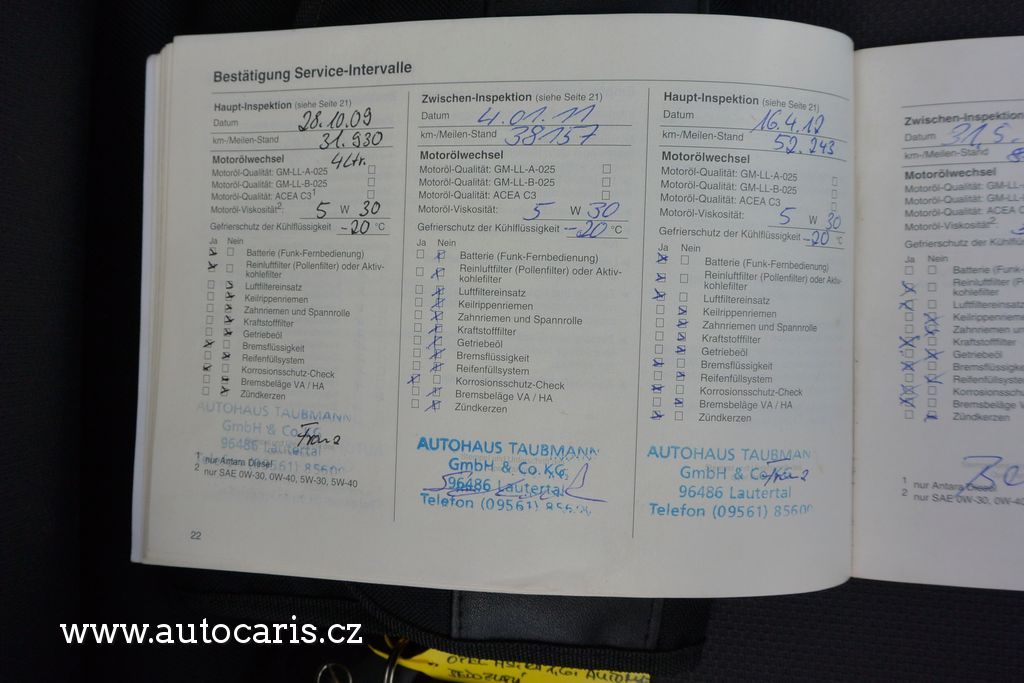 Bestätigung Service-Intervalle
Haupt-Inspektion (siehe Seite 21)
Datum 28.10.09
km-/Meilen-Stand 31.930
Motorölwechsel 4 Ltr.
Motoröl-Qualität: GM-LL-A-025
Motoröl-Qualität: GM-LL-B-025
Motoröl-Qualität: ACEA C3¹
Motoröl-Viskosität²: 5 W 30
Gefrierschutz der Kühlflüssigkeit -20 °C
Ja Nein
Batterie (Funk-Fernbedienung)
Reinluftfilter (Pollenfilter) oder Aktiv-
kohlefilter
Luftfiltereinsatz
Keilrippenriemen
Zahnriemen und Spannrolle
Kraftstofffilter
Getriebeöl
Bremsflüssigkeit
Reifenfüllsystem
Korrosionsschutz-Check
Bremsbeläge VA / HA
Zündkerzen
AUTOHAUS TAUBMANN
GmbH & Co. KG
96486 Lautertal
(09561) 85600
¹ nur Antara Diesel
² nur SAE 0W-30, 0W-40, 5W-30, 5W-40
22
Zwischen-Inspektion (siehe Seite 21)
Datum 4.01.11
km-/Meilen-Stand 38157
Motorölwechsel
Motoröl-Qualität: GM-LL-A-025
Motoröl-Qualität: GM-LL-B-025
Motoröl-Qualität: ACEA C3
Motoröl-Viskosität: 5 W 30
Gefrierschutz der Kühlflüssigkeit -20 °C
Ja Nein
Batterie (Funk-Fernbedienung)
Reinluftfilter (Pollenfilter) oder Aktiv-
kohlefilter
Luftfiltereinsatz
Keilrippenriemen
Zahnriemen und Spannrolle
Kraftstofffilter
Getriebeöl
Bremsflüssigkeit
Reifenfüllsystem
Korrosionsschutz-Check
Bremsbeläge VA / HA
Zündkerzen
AUTOHAUS TAUBMANN
GmbH & Co. KG
96486 Lautertal
Telefon (09561)
Haupt-Inspektion (siehe Seite 21)
Datum 16.4.12
km-/Meilen-Stand 52.243
Motorölwechsel
Motoröl-Qualität: GM-LL-A-025
Motoröl-Qualität: GM-LL-B-025
Motoröl-Qualität: ACEA C3
Motoröl-Viskosität: 5 W 30
Gefrierschutz der Kühlflüssigkeit -20 °C
Ja Nein
Batterie (Funk-Fernbedienung)
Reinluftfilter (Pollenfilter) oder Aktiv-
kohlefilter
Luftfiltereinsatz
Keilrippenriemen
Zahnriemen und Spannrolle
Kraftstofffilter
Getriebeöl
Bremsflüssigkeit
Reifenfüllsystem
Korrosionsschutz-Check
Bremsbeläge VA / HA
Zündkerzen
AUTOHAUS TAUBMAN
GmbH & Co.
96486 Lautertal
Telefon (09561) 85600
Zwischen-Inspektion
Datum
km-/Meilen-Stand
Motorölwechsel
Motoröl-Qualität: GM-LL-
Motoröl-Qualität: GM-LL-
Motoröl-Qualität: ACEA C
Motoröl-Viskosität²:
Gefrierschutz der Kühlflüssi
Ja Nein
Batterie (Funk-F
Reinluftfilter (Po
kohlefilter
Luftfiltereinsatz
Keilrippenrieme
Zahnriemen un
Kraftstofffilter
Getriebeöl
Bremsflüssigke
Reifenfüllsyste
Korrosionsschut
Bremsbeläge VA
Zündkerzen
¹ nur Antara Diesel
² nur SAE 0W-30, 0W-40
www.autocaris.cz
OPEL